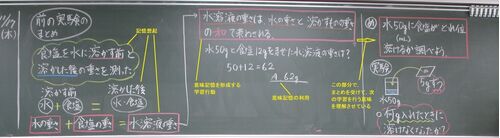 11/7
(木)
前の実験の
まとめ
記憶想起
食塩を水に溶かす前と
溶かした後の重さを測った。
溶かす前
溶かした後
水+食塩 = 水・食塩
水の重さ + 食塩の重さ = 水溶液の重さ
水溶液の重さは、水の重さと溶かす物の重さ
の和で表わされる。
水50gに食塩12gをとかせた水溶液の重さは?
50+12=62
A. 62g
意味記憶を形成する
学習行動
意味記憶の利用
この部分で、
まとめを受けて、次
の学習を行う意味
を理解させている
水50gに食塩がどれ位
(mL)
溶けるか調べよう。
実験
5gずつ
水50g
何g入れたときに
溶けなくなったか?